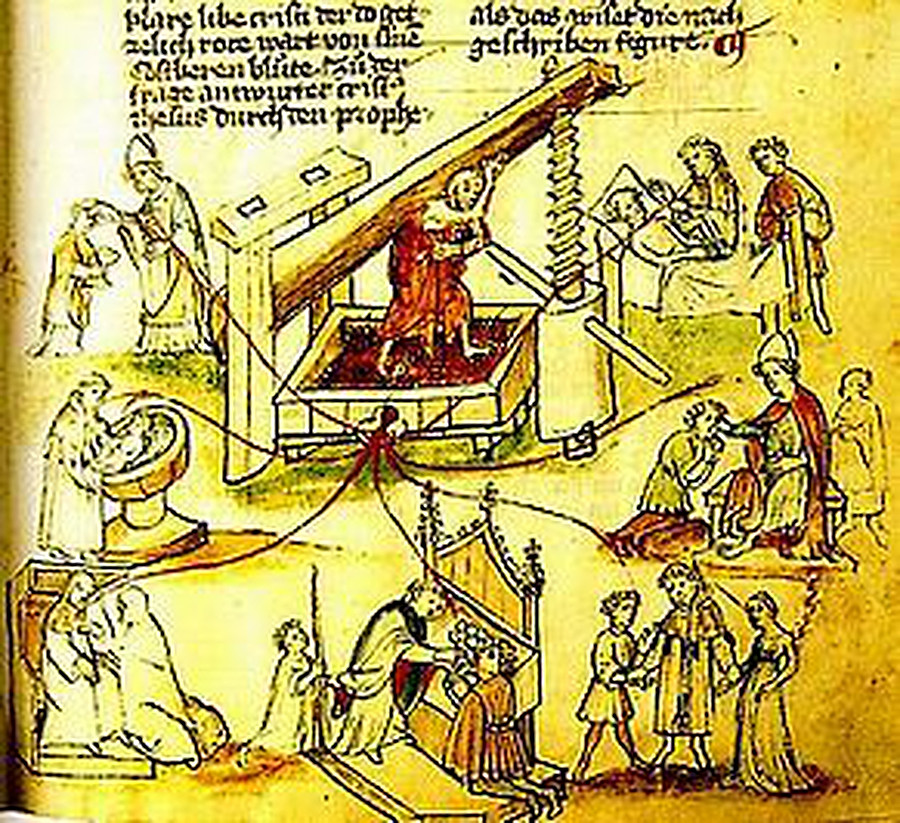 libe cristi der do get
rote wart von sine
Costberen blute. Zu der
frage antwurtet crist
ihesus durch den prophe
als das wiset die nach
geschriben figure.